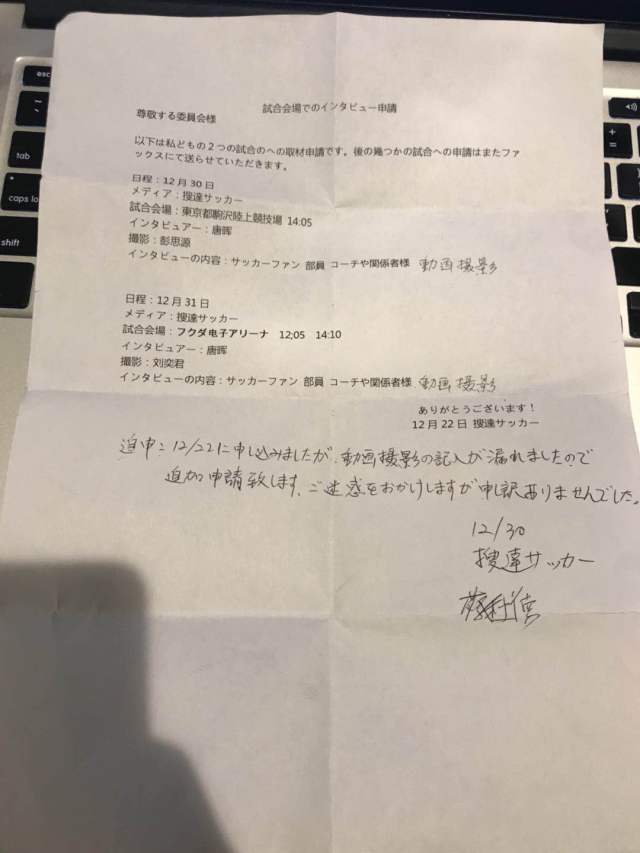 試合会場でのインタビュー申請
尊敬する委員会様
以下は私どもの2つの試合のへの取材申請です。後の幾つかの試合への申請はまたファ
ックスにて送らせていただきます。
日程：12月30日
メディア：捜達サッカー
試合会場：東京都駒沢陸上競技場 14:05
インタビュアー：唐晖
撮影：彭思源
インタビューの内容：サッカーファン 部員 コーチや関係者様 動画撮影
日程：12月31日
メディア：捜達サッカー
試合会場：フクダ电子アリーナ 12;05 14:10
インタビュアー：唐晖
撮影：刘奕君
インタビューの内容：サッカーファン 部員 コーチや関係者様 動画撮影
ありがとうございます！
12月22日 捜達サッカー
追申：12/22に申し込みましたが、動画撮影の記入が漏れましたので
追加申請致します、ご迷惑をおかけしますが申し訳ありませんでした。
12/30
捜達サッカー
esc
tab
caps lo
shift